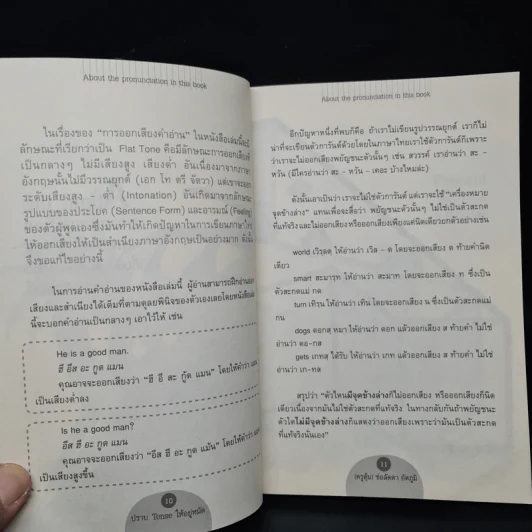 About the pronunciation in this book
ในเรื่องของ "การออกเสียงคำอ่าน" ในหนังสือเล่มนี้จะมี
ลักษณะที่เรียกว่าเป็น Flat Tone คือมีลักษณะการออกเสียงที่
เป็นกลางๆ ไม่มีเสียงสูง เสียงต่ำ อันเนื่องมาจากภาษา
อังกฤษนั้นไม่มีวรรณยุกต์ (เอก โท ตรี จัตวา) แต่เขาจะออก
ระดับเสียงสูง - ต่ำ (Intonation) อันเกิดมาจากลักษณะ
รูปแบบของประโยค (Sentence Form) และอารมณ์ (Feeling)
ของตัวผู้พูดเองซึ่งมันทำให้เกิดปัญหาในการเขียนภาษาไทย
ให้ออกเสียงให้เป็นสำเนียงภาษาอังกฤษเป็นอย่างมาก ดังนั้น
จึงขอแก้ไขอย่างนี้
ในการอ่านคำอ่านของหนังสือเล่มนี้ ผู้อ่านสามารถฝึกอ่านออก
เสียงและสำเนียงได้เต็มที่ตามดุลยพินิจของตัวเองเลยโดยหนังสือเล่ม
นี้จะบอกคำอ่านเป็นกลางๆ เอาไว้ให้ เช่น
He is a good man.
ฮี อีส อะ กูด แมน
คุณอาจจะออกเสียงว่า "ฮี อี สะ กู้ด แมน" โดยให้คำว่า แมน
เป็นเสียงต่ำลง
Is he a good man?
อีส ฮี อะ กูด แมน
คุณอาจจะออกเสียงว่า "อีส ฮี อะ กู้ด แม้น" โดยให้คำว่า แมน
เป็นเสียงสูงขึ้น
10
ปราบ Tense ให้อยู่หมัด
About the pronunciation in this book
อีกปัญหาหนึ่งที่พบก็คือ ถ้าเราไม่เขียนรูปวรรณยุกต์ เราก็ไม่
น่าที่จะเขียนตัวการันต์ด้วยโดยในภาษาไทยเราใช้ตัวการันต์ก็เพราะ
ว่าเราจะไม่ออกเสียงพยัญชนะตัวนั้นๆ เช่น สวรรค์ เราอ่านว่า สะ -
หวัน (มีใครอ่านว่า สะ - หวัน - เคอะ บ้างไหมล่ะ)
ดังนั้นเอาเป็นว่า เราจะไม่ใช้ตัวการันต์ แต่เราจะใช้ "เครื่องหมาย
จุดข้างล่าง" แทนเพื่อจะสื่อว่า พยัญชนะตัวนั้นๆ ไม่ใช่เป็นตัวสะกด
ที่แท้จริงและไม่ออกเสียงหรือออกเสียงเพียงแค่นิดเดียวยกตัวอย่างเช่น
world เวิรฺลดฺ ให้อ่านว่า เวิล - ด โดยจะออกเสียง ด ท้ายคำนิด
เดียว
smart สะมารฺท ให้อ่านว่า สะมาท โดยจะออกเสียง ท ซึ่งเป็น
ตัวสะกดแม่ กด
turn เทิรฺน ให้อ่านว่า เทิน โดยจะออกเสียง น ซึ่งเป็นตัวสะกดแม่
กน
dogs ดอกสฺ หมา ให้อ่านว่า ดอก แล้วออกเสียง ส ท้ายคำ ไม่ใช่
อ่านว่า ดอ-กส
gets เกทสฺ ได้รับ ให้อ่านว่า เกท แล้วออกเสียง ส ท้ายคำ ไม่ใช่
อ่านว่า เก-ทส
สรุปว่า "ตัวไหนมีจุดข้างล่างก็ไม่ออกเสียง หรือออกเสียงก็นิด
เดียวเนื่องจากมันไม่ใช่ตัวสะกดที่แท้จริง ในทางกลับกันถ้าพยัญชนะ
ตัวใดไม่มีจุดข้างล่างก็แสดงว่าออกเสียงเพราะว่ามันเป็นตัวสะกด
ที่แท้จริงนั่นเอง"
11
(ครูตุ้ม) ช่อลัดดา